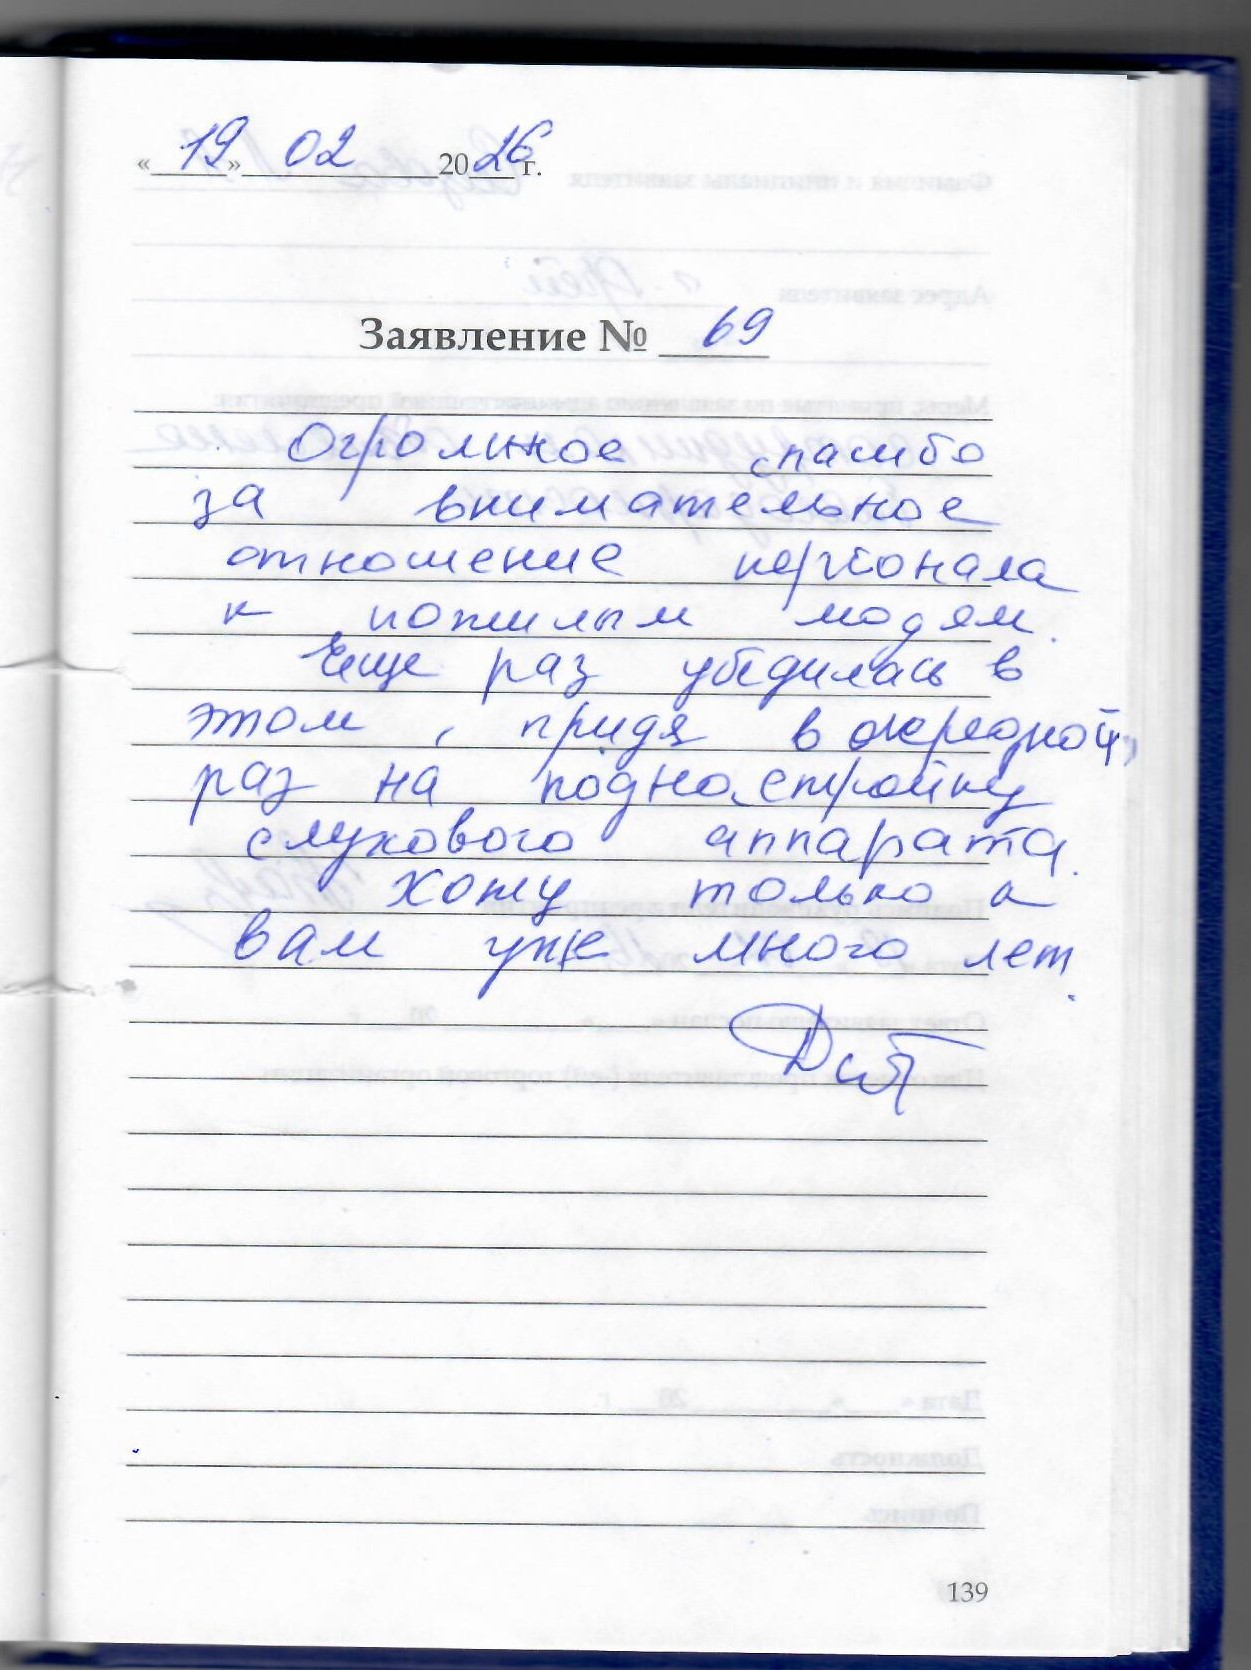 «19» 02 2026 г.
Заявление № 69
Огромное спасибо
за внимательное
отношение персонала
к пожилым людям.
Еще раз убедилась в
этом, придя в очередной
раз на поднастройку
слухового аппарата.
Хожу только к
вам уже много лет.
139